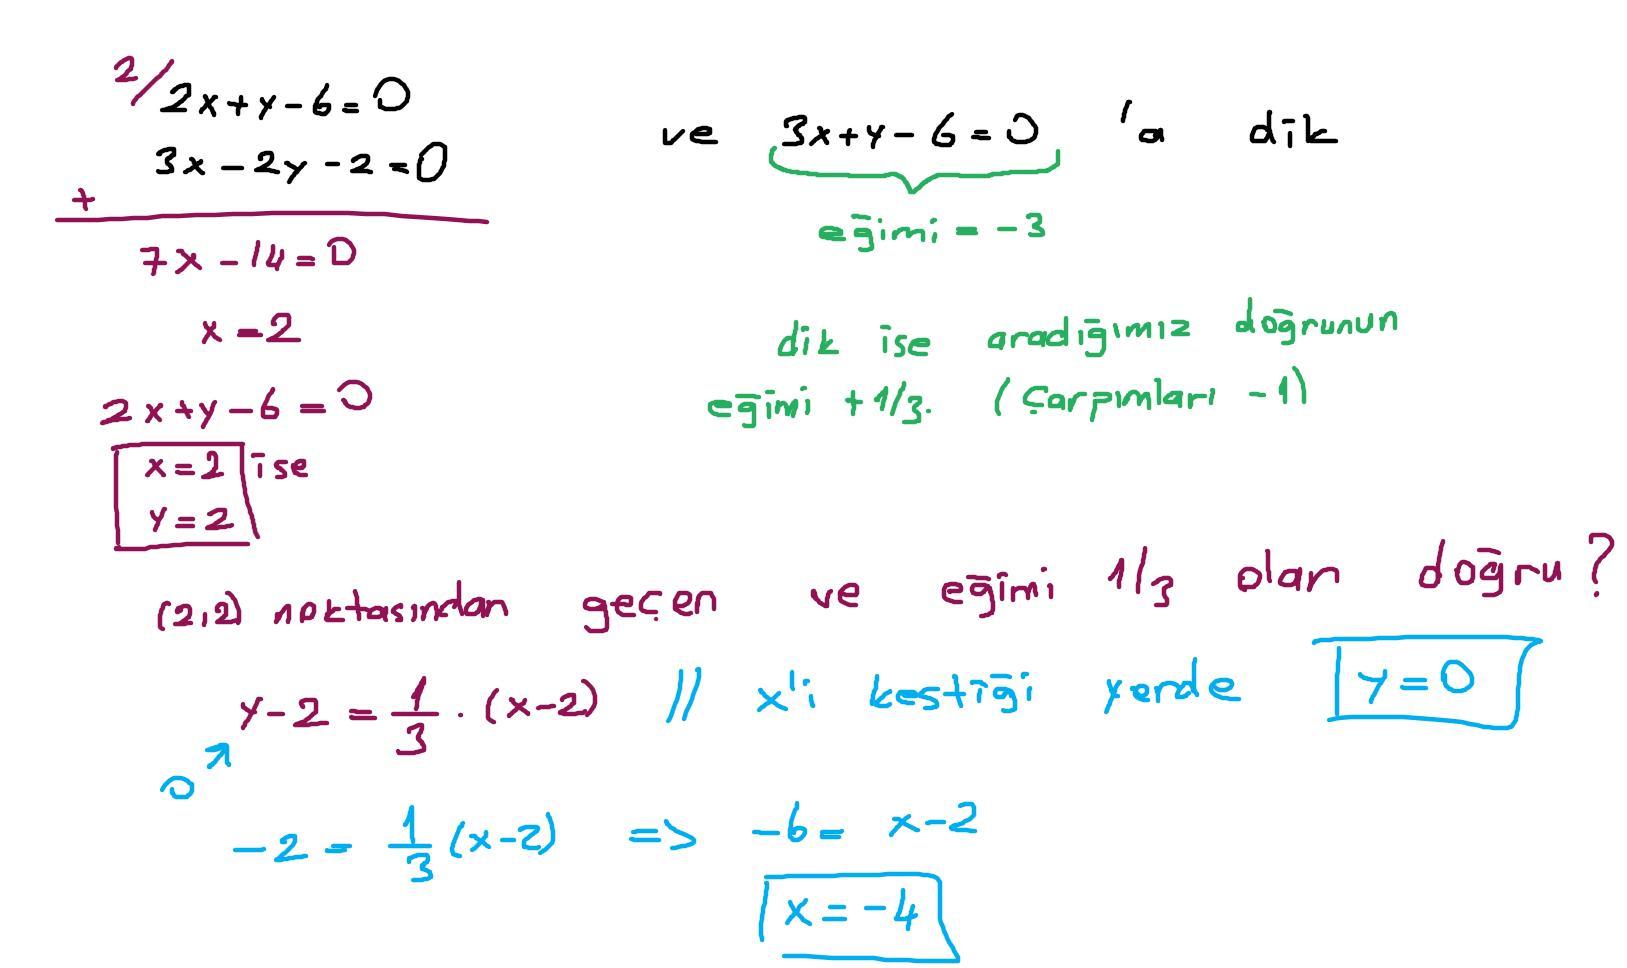 2/ 2x+y-6=0
3x-2y-2=0
+
7x-14=0
x=2
2x+y-6=0
x=2 ise
y=2
ve 3x+y-6=0 'a dik
eğimi = -3
dik ise aradığımız doğrunun
eğimi +1/3. (Çarpımları -1)
(2,2) noktasından geçen ve eğimi 1/3 olan doğru?
y-2 = 1/3 . (x-2) // x'i kestiği yerde y=0
0
-2 = 1/3 (x-2) => -6= x-2
x=-4